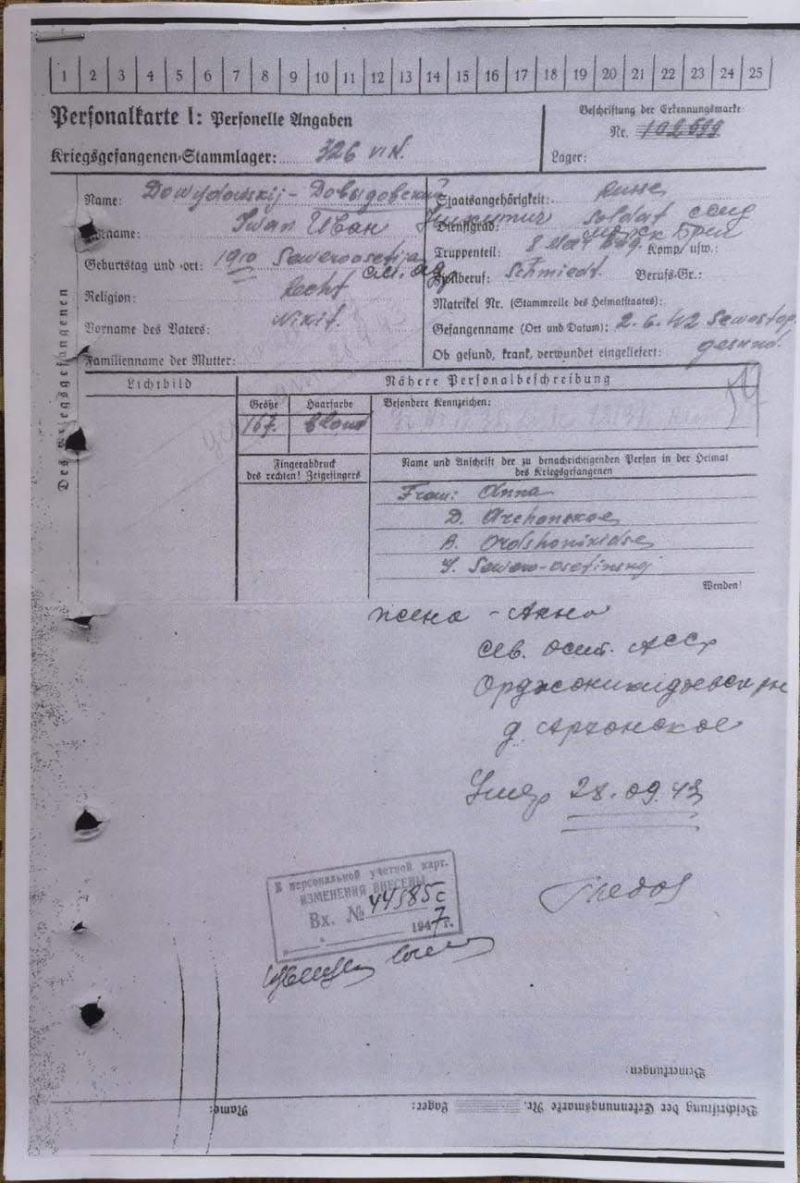 1 2 3 4 5 6 7 8 9 10 11 12 13 14 15 16 17 18 19 20 21 22 23 24 25
Personalkarte I: Personelle Angaben
Kriegsgefangenen-Stammlager: 326 VI K.
Beschriftung der Erkennungsmarke
Nr.
Lager:
Des Kriegsgefangenen
Name: Dowydowskij - Довыдовский
Vorname: Iwan Иван Никитич
Geburtstag und -ort: 1910 Seweroosetija
Religion:
Vorname des Vaters: Nikit.
Familienname der Mutter:
Staatsangehörigkeit: Russe
Dienstgrad: Soldat солд
Truppenteil: 8 Komp. usw.:
Zivilberuf: Schmiedt. Berufs-Gr.:
Matrikel Nr. (Stammrolle des Heimatstaates):
Gefangennahme (Ort und Datum): 2.6.42 Sewastop.
Ob gesund, krank, verwundet eingeliefert: gesund.
Lichtbild
Nähere Personalbeschreibung
Größe Haarfarbe Besondere Kennzeichen:
167. blond
Fingerabdruck
des rechten! Zeigefingers
Name und Anschrift der zu benachrichtigenden Person in der Heimat
des Kriegsgefangenen
Frau: Anna
D. Archonskoe
R. Ordshonikidse
Sewero-osetinskij
Wenden!
жена - Анна
Сев. Осет. АССР
Орджоникидзевск рн
д. Архонское
Умер 28.09.43
В персональной учетной карт.
ИЗМЕНЕНИЯ ВНЕСЕНЫ
Вх. № 44585с
1947 г.
Bemerkungen:
Beschriftung der Erkennungsmarke Nr. Lager: Name: